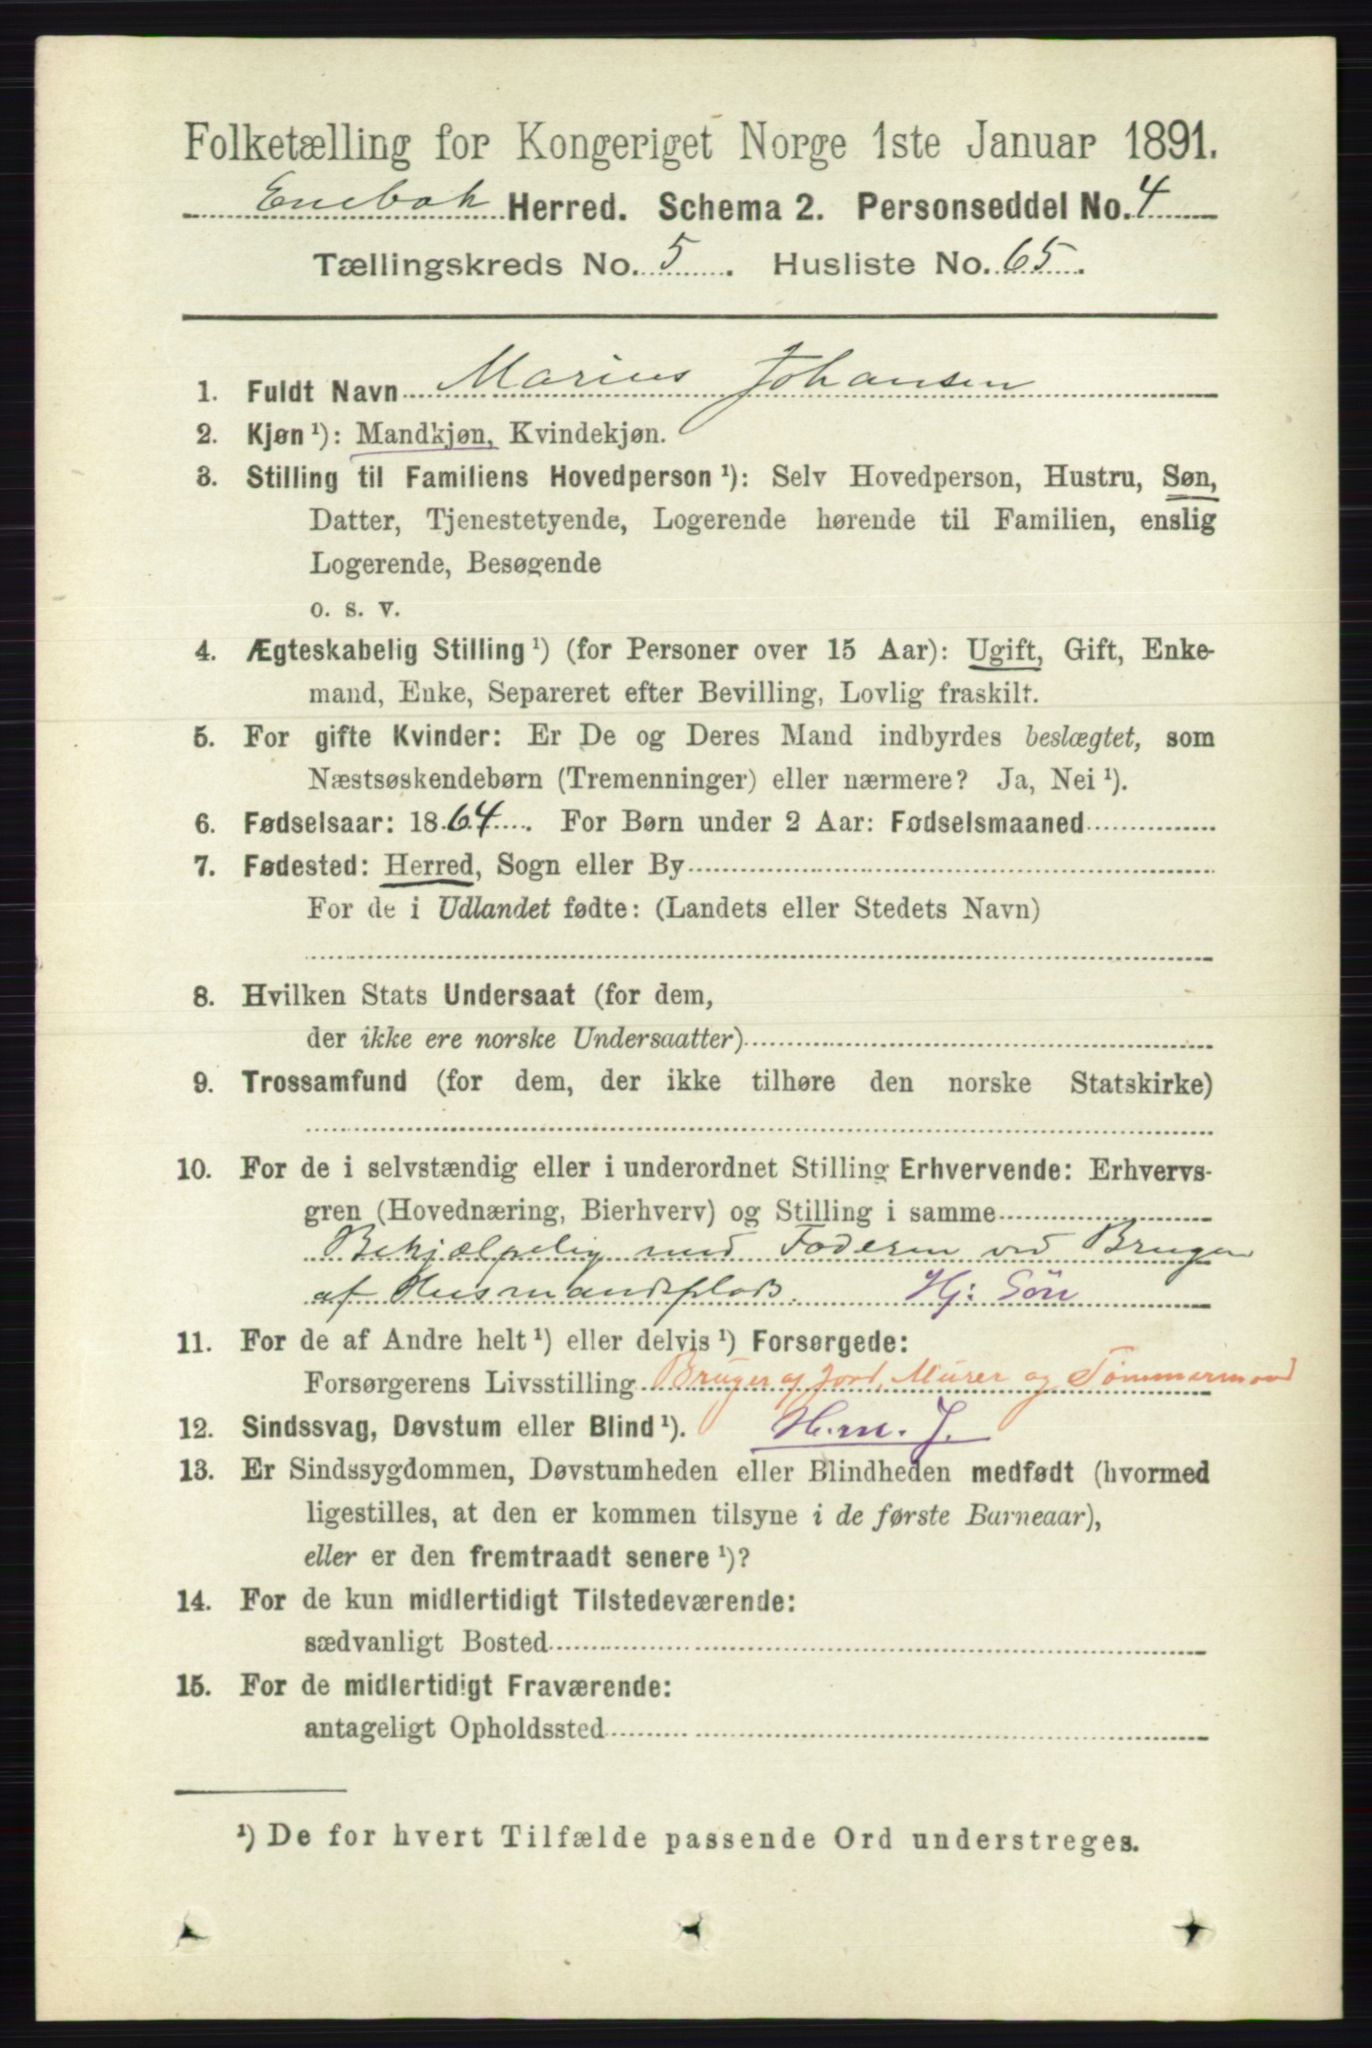 Folketælling for Kongeriget Norge 1ste Januar 1891.
Enebak Herred. Schema 2. Personseddel No. 4
Tællingskreds No. 5. Husliste No. 65.
1. Fuldt Navn Marius Johansen
2. Kjøn ¹): Mandkjøn, Kvindekjøn.
3. Stilling til Familiens Hovedperson ¹): Selv Hovedperson, Hustru, Søn,
Datter, Tjenestetyende, Logerende hørende til Familien, enslig
Logerende, Besøgende
o. s. v.
4. Ægteskabelig Stilling ¹) (for Personer over 15 Aar): Ugift, Gift, Enke-
mand, Enke, Separeret efter Bevilling, Lovlig fraskilt.
5. For gifte Kvinder: Er De og Deres Mand indbyrdes beslægtet, som
Næstsøskendebørn (Tremenninger) eller nærmere? Ja, Nei ¹).
6. Fødselsaar: 1864. For Børn under 2 Aar: Fødselsmaaned
7. Fødested: Herred, Sogn eller By
For de i Udlandet fødte: (Landets eller Stedets Navn)
8. Hvilken Stats Undersaat (for dem,
der ikke ere norske Undersaatter)
9. Trossamfund (for dem, der ikke tilhøre den norske Statskirke)
10. For de i selvstændig eller i underordnet Stilling Erhvervende: Erhvervs-
gren (Hovednæring, Bierhverv) og Stilling i samme
Behjælpelig med Faderen ved Brugen
af Husmandsplads. Hj: Søn
11. For de af Andre helt ¹) eller delvis ¹) Forsørgede:
Forsørgerens Livsstilling Bruger af Jord, Murer og Tømmermand
12. Sindssvag, Døvstum eller Blind ¹). H.m. J.
13. Er Sindssygdommen, Døvstumheden eller Blindheden medfødt (hvormed
ligestilles, at den er kommen tilsyne i de første Barneaar),
eller er den fremtraadt senere ¹)?
14. For de kun midlertidigt Tilstedeværende:
sædvanligt Bosted
15. For de midlertidigt Fraværende:
antageligt Opholdssted
¹) De for hvert Tilfælde passende Ord understreges.